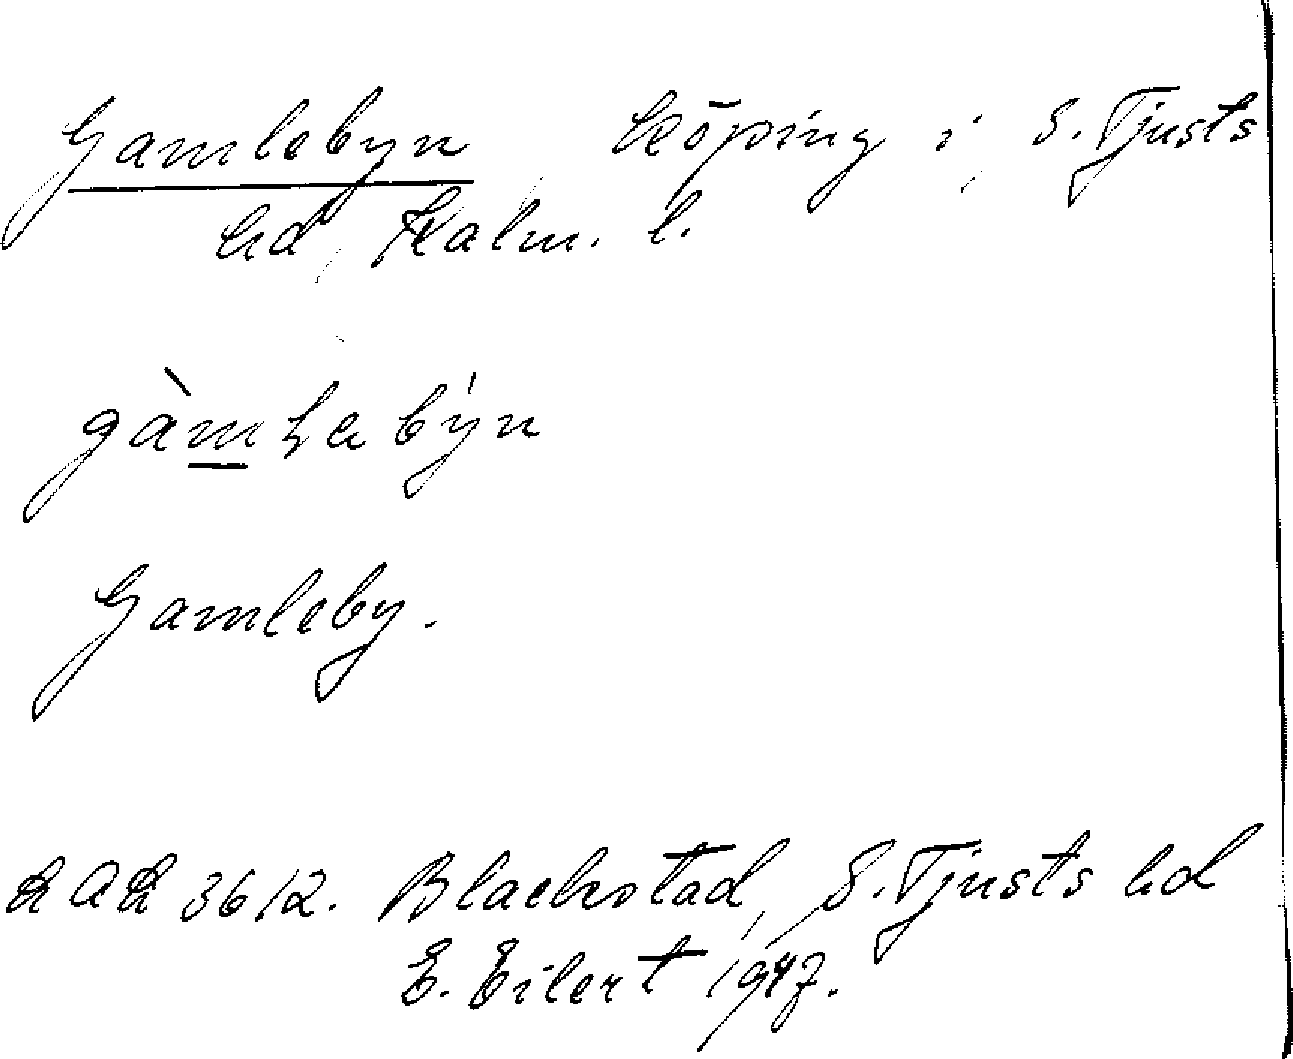 Gamlebyn, köping i S. Tjusts
hd, Kalm. l.
gàmlabýn
Gamleby.
3612. Blackstad, S. Tjusts hd
E. Eilert 1947.